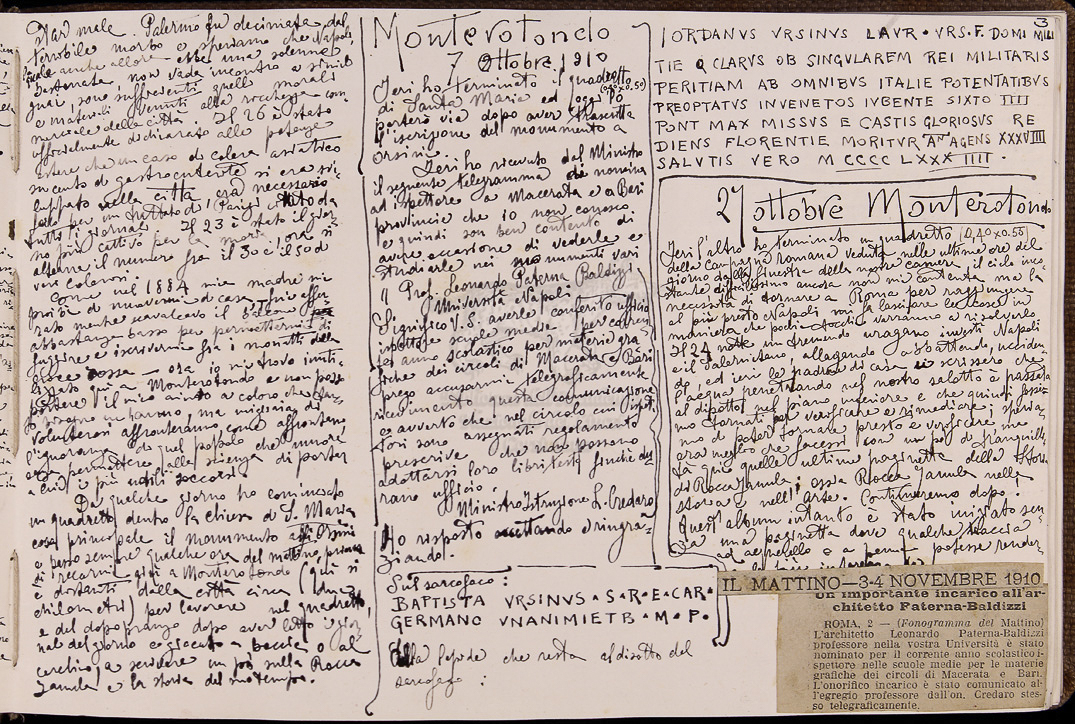 star male. Palermo fu decimata dal
terribile morbo e speriamo che Napoli,
anche allora
bastonata, non vada incontro a simili
guai, sono sufficienti quelli morali
e materiali venuti alla rocchezza com-
merciale della città. Il 26 è stato
ufficialmente dichiarato alle potenze
estere che un caso di colera asiatico
seguito di gastroenterite si era svi-
luppato nella città
tutti i giornali. Il 23 è stato il gior-
no più cattivo per la
il numero fra il 30 e il 50 di
veri colerosi.
Come nel 1884 mia madre mi
privò di muovermi di casa
scavalcavo il balcone
abbastanza basso per permettermi di
fuggire e iscrivermi fra i militi della
croce rossa — ora io mi trovo invili-
qui a Monterotondo e non posso
portare il mio aiuto a coloro che
ma migliaia di
volenterosi affronteranno come affrontano
l'ignoranza di quel popolo che muore
alla scienza di portar
a lui i più utili soccorsi.
Da qualche giorno ho cominciato
un quadretto dentro la chiesa di S. Maria
cosa principale il monumento agli Orsini
e passo sempre qualche ora del mattino, prima
di recarmi giù a Monterotondo (giù si
distanti dalla città circa due
chilometri) per lavorare nel quadretto,
e del dopo pranzo dopo aver letto i gior-
nali del giorno e giocato a boccia o al
cerchio, a scrivere un po' sulla Rocca
Janula e la storia del mio tempo.
Monterotondo
7 Ottobre 1910
Ieri ho terminato il quadretto
di Santa Maria ed oggi lo (0,40 x 0.50)
porterò via dopo aver trascritta
l'iscrizione del monumento a
Orsini.
Ieri ho ricevuto dal Ministro
il seguente telegramma di nomina
ad ispettore a Macerata e a Bari
provincie che io non conosco
e quindi son ben contento di
avere occasione di vederle e
studiarle nei monumenti vari
"Prof. Leonardo Paterna Baldizzi
Università Napoli
Significo V.S. averle conferito ufficio
ispettore scuole medie per corren-
te anno scolastico per materie gra-
fiche dei circoli di Macerata e Bari
prego accusarmi telegraficamente
ricevimento questa comunicazione
e avverto che nel circolo cui ispet-
tori sono assegnati regolamento
prescrive che non possono
adottarsi loro libri testo finché du-
rano ufficio.
Ministro Istruzione L. Credaro
Ho risposto accettando e ringra-
ziando.
Sul sarcofaco:
BAPTISTA VRSINVS • S • R • E • CAR •
GERMANO VNANIMIETB • M • P •
Nella lapide che resta al disotto del
sarcofago:
3
IORDANVS VRSINVS LAVR • VRS • F. DOMI MILI
TIE Q CLARVS OB SINGVLAREM REI MILITARIS
PERITIAM AB OMNIBVS ITALIE POTENTATIBVS
PREOPTATVS INVENETOS IVBENTE SIXTO IIII
PONT MAX MISSVS E CASTIS GLORIOSVS RE
DIENS FLORENTIE MORITVR AN AGENS XXXVIIII
SALVTIS VERO M CCCC LXXX IIII .
27 ottobre Monterotondo
Ieri l'altro ho terminato un quadretto (0,40 x 0.55)
della Campagna romana veduta nelle ultime ore del
giorno dalla finestra della nostra camera, il cielo inco-
stante difficilissimo ancora non mi contenta, ma la
necessità di tornare a Roma per raggiungere
al più presto Napoli mi fa lasciare le cose in
maniera che pochi tocchi varranno a risolverlo.
Il 24 notte un tremendo uragano investì Napoli
e il Salernitano, allagando, abbattendo, ucciden-
do, ed ieri le padrone di casa ci scrissero che
l'acqua penetrando nel nostro salotto è passata
al disotto nel piano inferiore e che quindi fossi-
mo tornati per verificare e rimediare; speria-
mo di poter tornare presto e verificare, ma
era meglio che facessi con un po' di tranquilli-
tà qui quelle ultime paginette della Storia
di Rocca Janula; ossia Rocca Janula nella
storia e nell'arte. Continueremo dopo.
Quest'album intanto è stato iniziato sen-
za una paginetta dove qualche macchia
ad acquerello o a penna potesse render-
IL MATTINO—3-4 NOVEMBRE 1910
Un importante incarico all'ar-
chitetto Paterna-Baldizzi
ROMA, 2 — (Fonogramma del Mattino)
L'architetto Leonardo Paterna-Baldizzi
professore nella vostra Università è stato
nominato per il corrente anno scolastico i-
spettore nelle scuole medie per le materie
grafiche dei circoli di Macerata e Bari.
L'onorifico incarico è stato comunicato al-
l'egregio professore dall'on. Credaro stes-
so telegraficamente.